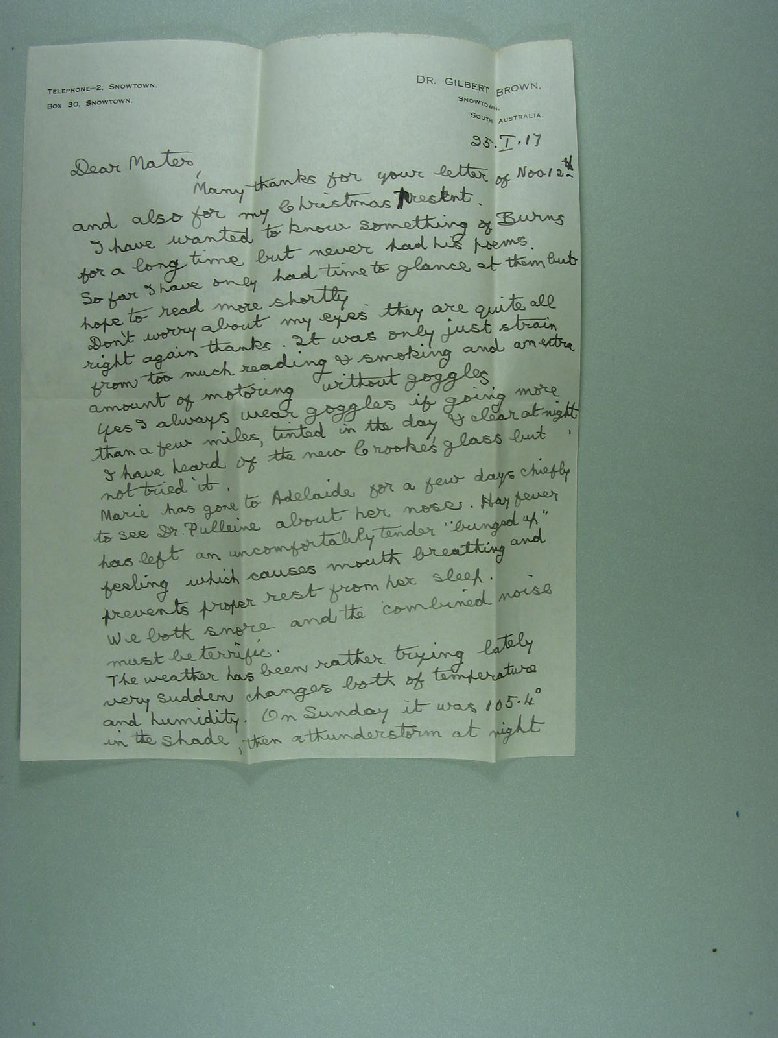 TELEPHONE–2, SNOWTOWN.
BOX 30, SNOWTOWN.
DR. GILBERT BROWN.
SNOWTOWN,
SOUTH AUSTRALIA.
25.I.17
Dear Mater,
Many thanks for your letter of Nov. 12th
and also for my Christmas Present.
I have wanted to know something of Burns
for a long time but never had his poems.
So far I have only had time to glance at them but
hope to read more shortly
Don't worry about my eyes they are quite all
right again thanks. It was only just strain
from too much reading & smoking and an extra
amount of motoring without goggles
Yes I always wear goggles if going more
than a few miles, tinted in the day & clear at night.
I have heard of the new Crookes glass but
not tried it.
Marie has gone to Adelaide for a few days chiefly
to see Dr Pulleine about her nose. Hay fever
has left an uncomfortably tender "bunged up"
feeling which causes mouth breathing and
prevents proper rest from her sleep.
We both snore and the combined noise
must be terrific.
The weather has been rather trying lately
very sudden changes both of temperature
and humidity. On Sunday it was 105.4°
in the shade, then a thunderstorm at night